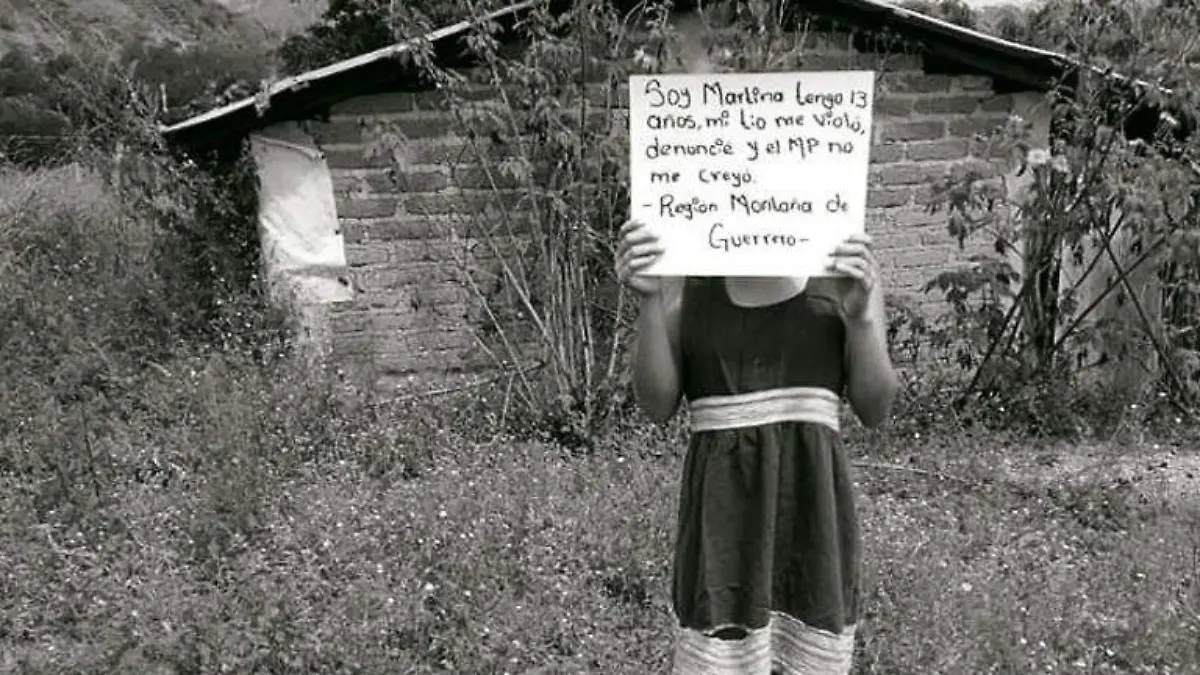 Soy Martina tengo 13
años, mi tio me violó,
denuncié y el MP no
me creyó.
- Región Montaña de
Guerrero -